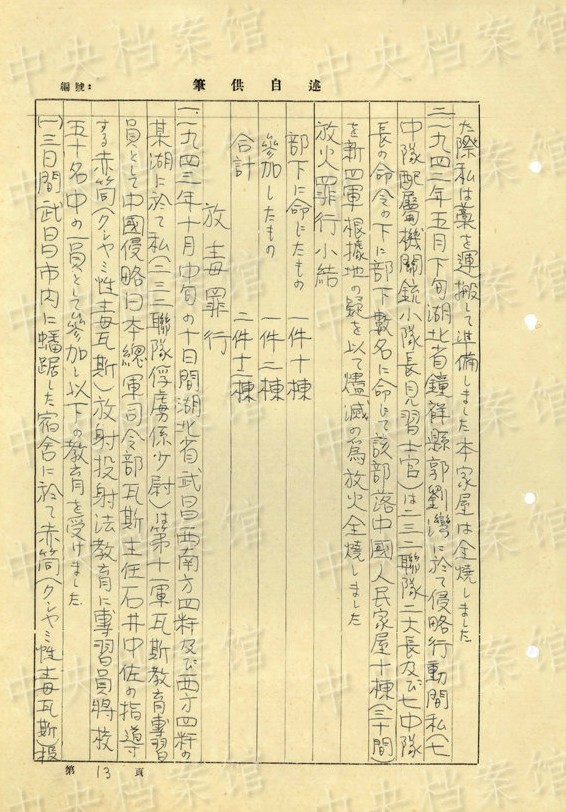 編號：
筆供自述
た際私は藁を運搬して準備しました本家屋は全燒しました
二、一九四二年五月下旬湖北省鐘祥縣郭劉灣に於て侵略行動間私(七
中隊配屬機關銃小隊長見習士官)は二三二聯隊二大長及び七中隊
長の命令の下に部下數名に命じて該部落中國人民家屋十棟(三十間)
を新四軍根據地の疑を以て燼滅の爲放火全燒しました
放火罪行小結
部下に命じたもの 一件十棟
參加したもの 一件一棟
合計 二件十一棟
放毒罪行
一、一九四三年十月中旬の十日間湖北省武昌西南方四粁及び西方四粁の
某湖に於て私(二三二聯隊俘虜係少尉)は第十一軍瓦斯教育專習
員として中國侵略日本總軍司令部瓦斯主任石井中佐の指導
する赤筒(クシャミ性毒瓦斯)放射投射法教育に專習員將校
五十名中の一員として參加し以下の教育を受けました
(一)三日間武昌市内に蟠踞した宿舍に於て赤筒(クシャミ性毒瓦斯)投
第 13 頁
中央档案馆